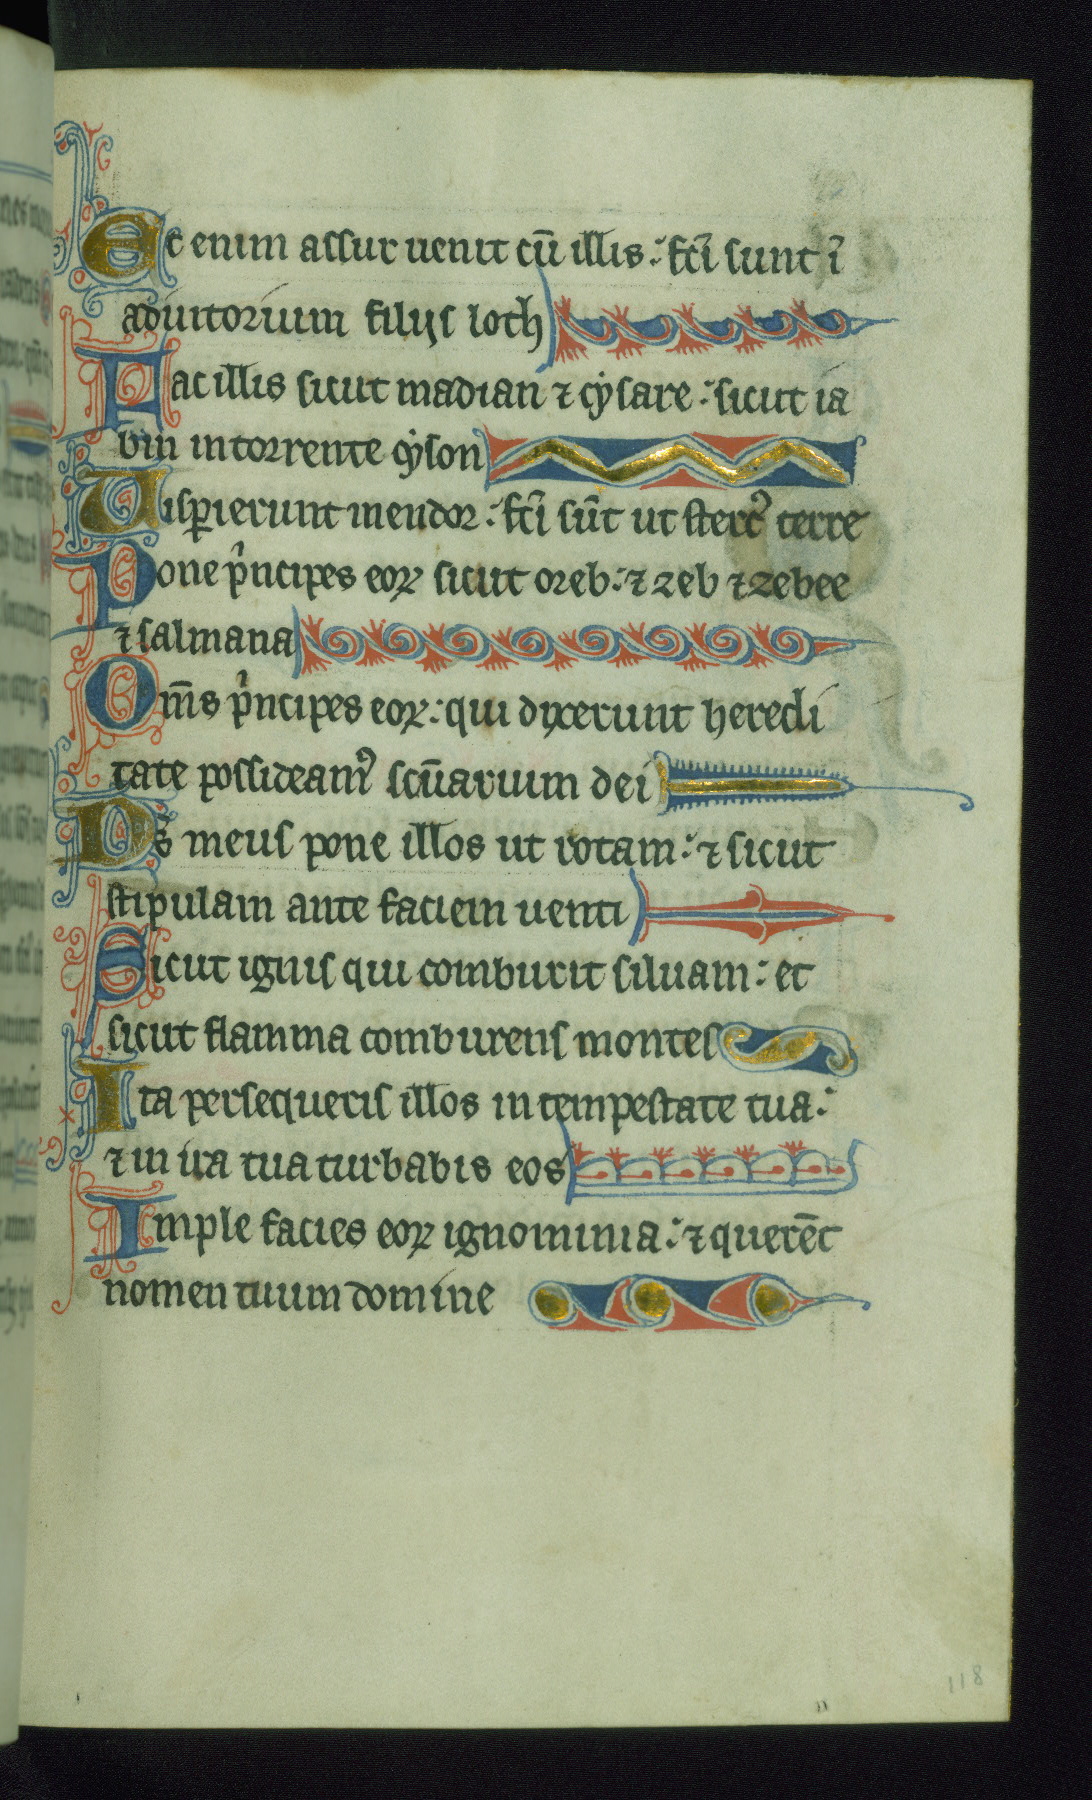 Et enim assur uenit cū illis : fc̄i sunt ī
adiutorium filijs loth
Fac illis sicut madian ⁊ cẏsare : sicut ia
bin in torrente cẏson
Disꝑierunt inendor : fc̄i sūt ut sterc᷒ terre
Pone pͥncipes eoꝝ sicut oreb : ⁊ zeb ⁊ zebee
⁊ salmana
Om̄s pͥncipes eoꝝ : qui dixerunt heredi
tate possideam᷒ scūarium dei
Ds̄ meus pone illos ut rotam : ⁊ sicut
stipulam ante faciem uenti
Sicut ignis qui comburit siluam : et
sicut flamma comburens montes
Ita persequeris illos in tempestate tua :
⁊ in ira tua turbabis eos
Imple facies eoꝝ ignominia : ⁊ querēt
nomen tuum domine
118